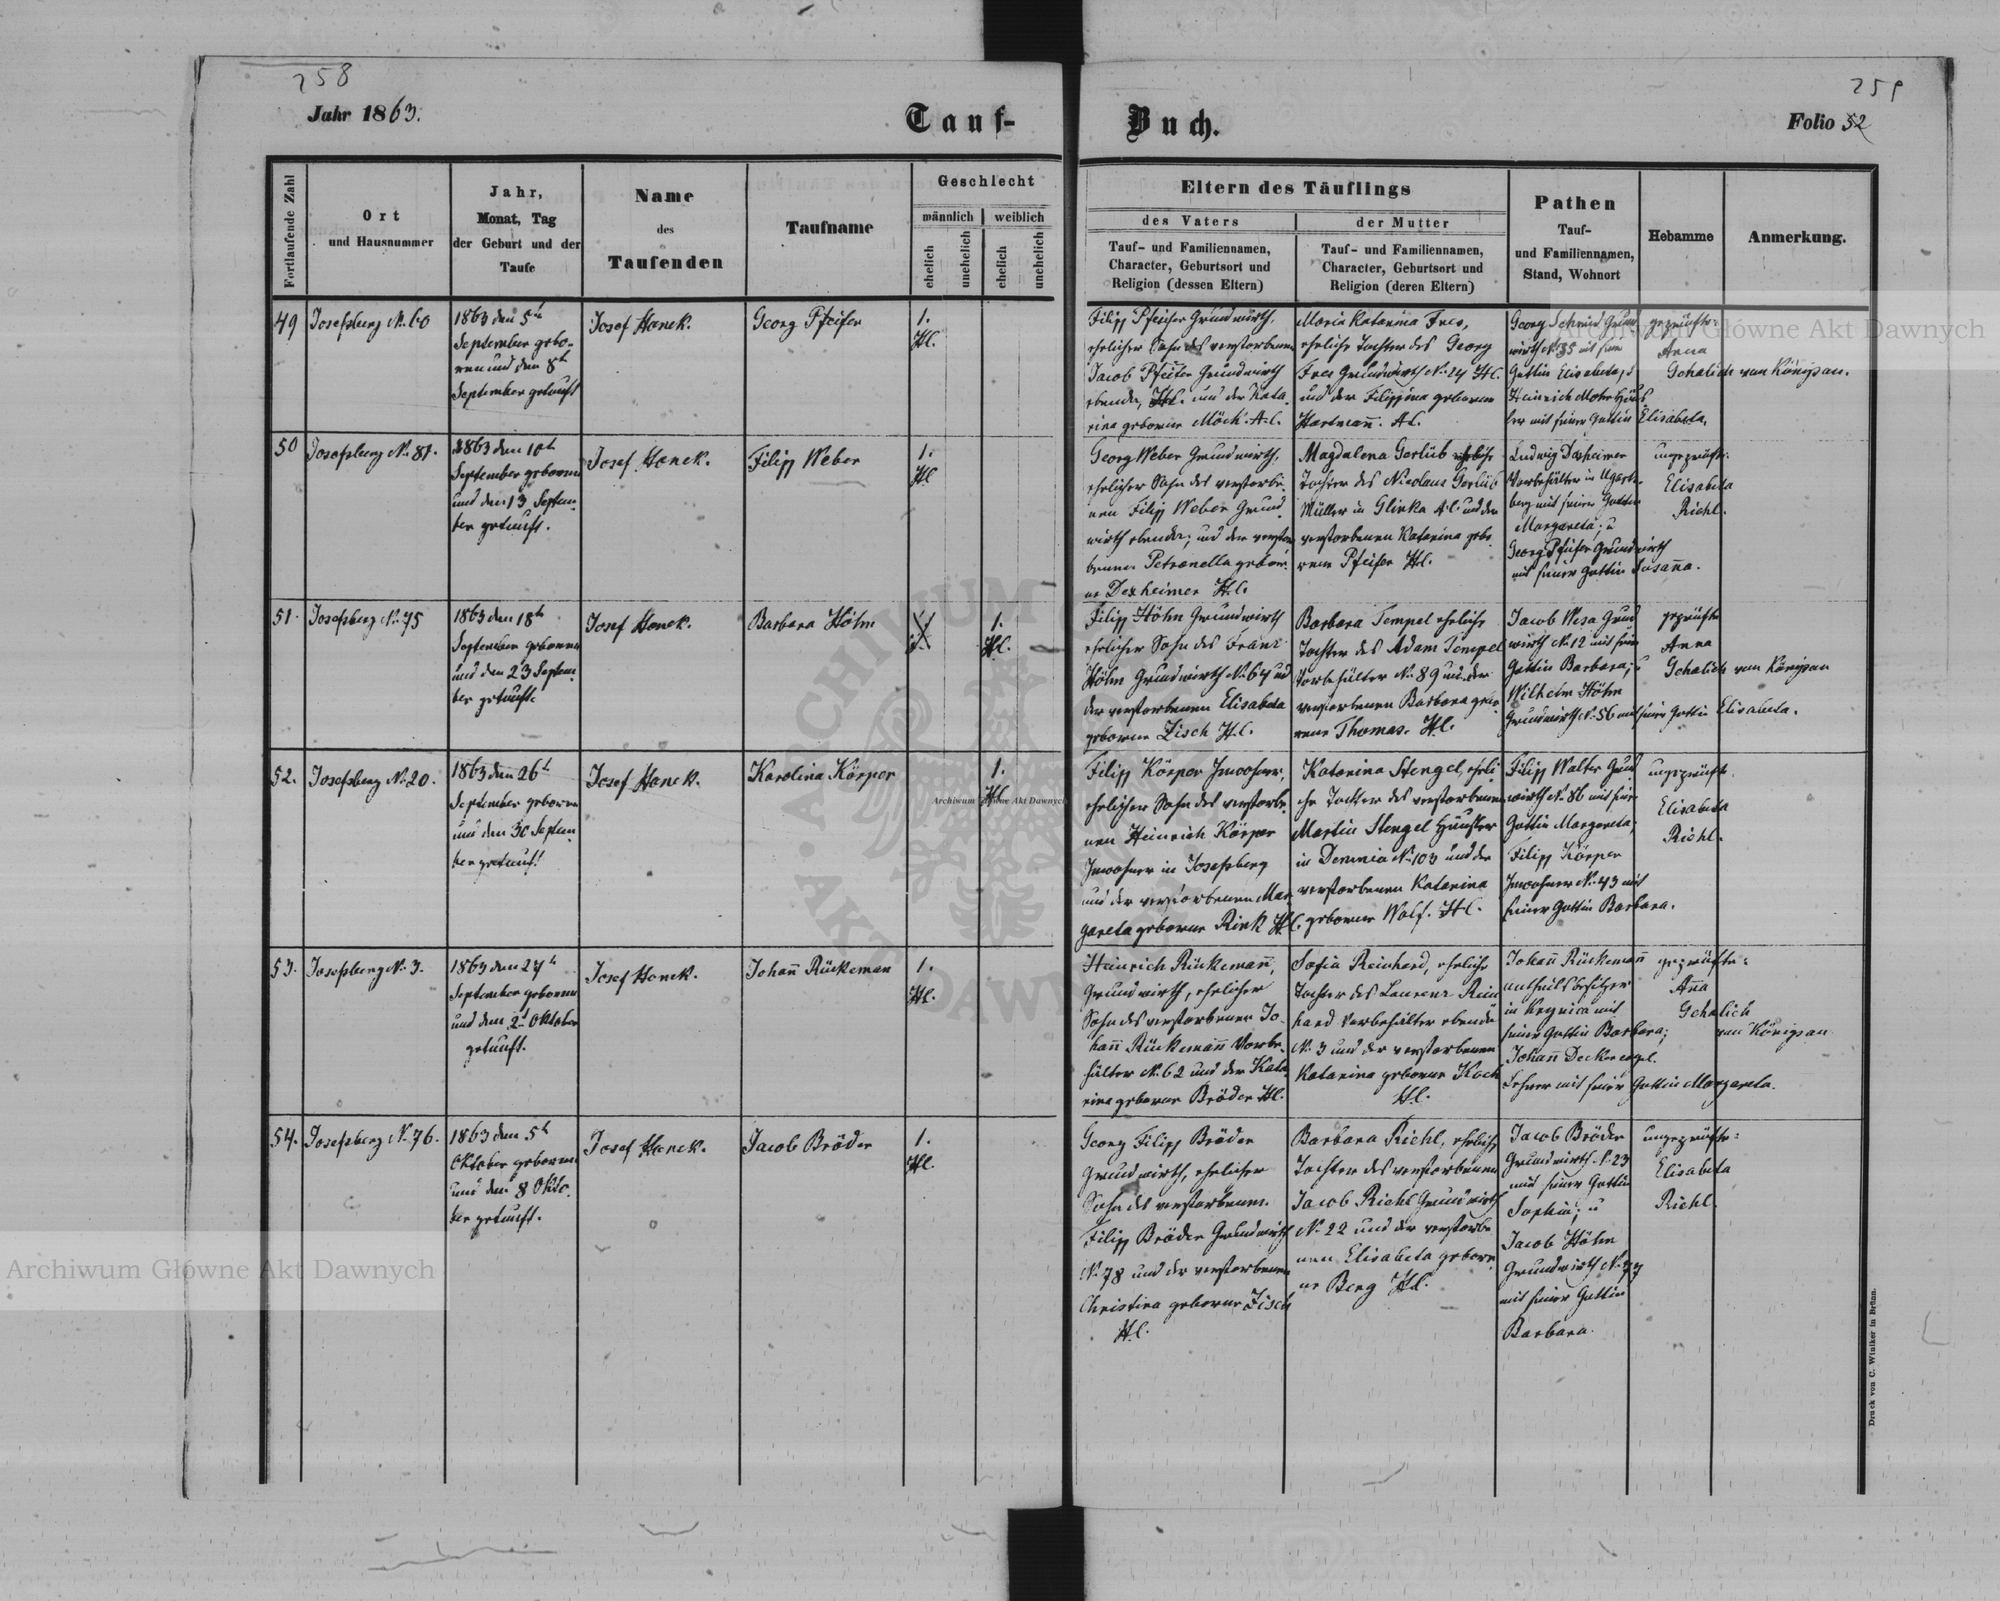 258
259
Jahr 1863.
Tauf-
Buch.
Folio 52
Fortlaufende Zahl
Ort
und Hausnummer
Jahr,
Monat, Tag
der Geburt und der
Taufe
Name
des
Taufenden
Taufname
Geschlecht
männlich
weiblich
ehelich
unehelich
ehelich
unehelich
Eltern des Täuflings
des Vaters
der Mutter
Tauf- und Familiennamen,
Character, Geburtsort und
Religion (dessen Eltern)
Tauf- und Familiennamen,
Character, Geburtsort und
Religion (deren Eltern)
Pathen
Tauf-
und Familiennamen,
Stand, Wohnort
Hebamme
Anmerkung.
49
Josefsberg N. 60
1863 den 5t
September gebo-
ren und den 8t
September getauft
Josef Hanek.
Georg Pfeifer
1.
H.C.
Filipp Pfeifer Grundwirth,
ehelicher Sohn des verstorbenen
Jacob Pfeifer Grundwirth
ebenda, H.C. und der Kata-
rina geborne Möck. A.C.
Maria Katarina Free,
eheliche Tochter des Georg
Free Grundwirth N. 24 H.C.
und der Filippina geborene
Hartmann. A.C.
Georg Schmid Grund
wirth N. 35 mit seiner
Gattin Elisabeta,
Heinrich Mohr Häus
ler mit seiner Gattin Elisabeta.
geprüfte:
Anna
Gehalich von Königsau.
50
Josefsberg N. 81.
1863 den 10t
September geboren
und den 13 Septem
ber getauft.
Josef Hanek.
Filipp Weber
1.
H.C.
Georg Weber Grundwirth,
ehelicher Sohn des verstorbe
nen Filipp Weber Grund
wirth ebenda; und der verstor
benen Petronella gebor
ne Dexheimer H.C.
Magdalena Gerlib eheliche
Tochter des Nicolaus Gerlib
Müller in Glinka A.C. und der
verstorbenen Katarina gebo
rene Pfeifer H.C.
Ludwig Dexheimer
Vorbehälter in Ugarts
berg mit seiner Gattin
Margareta; u
Georg Pfeifer Grundwirth
mit seiner Gattin Susanna.
ungeprüfte:
Elisabeta
Richl.
51.
Josefsberg N. 75
1863 den 18t
September geboren
und den 23 Septem
ber getauft.
Josef Hanek.
Barbara Höhn
1.
H.C.
Filipp Höhn Grundwirth
ehelicher Sohn des Franz
Höhn Grundwirth N. 64 und
der verstorbenen Elisabeta
geborne Zisch H.C.
Barbara Tempel eheliche
Tochter des Adam Tempel
Vorbehälter N. 89 und der
verstorbenen Barbara gebo
rene Thomas. H.C.
Jacob Wesa Grund
wirth N. 12 mit seiner
Gattin Barbara; u
Wilhelm Höhn
Grundwirth N. 56 mit seiner Gattin Elisabeta.
geprüfte
Anna
Gehalich von Königsau
52.
Josefsberg N. 20.
1863 den 26t
September geboren
und den 30 Septem
ber getauft.
Josef Hanek.
Karolina Körper
1.
H.C.
Filipp Körper Inwohner,
ehelicher Sohn des verstorbe
nen Heinrich Körper
Inwohner in Josefsberg
und der verstorbenen Mar
gareta geborne Rink H.C.
Katarina Stengel, eheli
che Tochter des verstorbenen
Martin Stengel Häusler
in Demnia N. 103 und der
verstorbenen Katarina
geborne Wolf. H.C.
Filipp Walter Grund
wirth N. 86 mit seiner
Gattin Margareta;
Filipp Körper
Inwohner N. 43 mit
seiner Gattin Barbara.
ungeprüfte
Elisabeta
Richl.
53.
Josefsberg N. 3.
1863 den 27t
September geboren
und den 2t Oktober
getauft.
Josef Hanek.
Johann Rückeman
1.
H.C.
Heinrich Rückemann,
Grundwirth, ehelicher
Sohn des verstorbenen Jo-
hann Rückemann Vorbe-
hälter N. 62 und der Kata
rina geborne Bröder H.C.
Sofia Reinhard, eheliche
Tochter des Laurenz Rein
hard Vorbehälter ebenda
N. 3 und der verstorbenen
Katarina geborne Koch
H.C.
Johann Rückemann
Antheilsbesitzer
in Keynica mit
seiner Gattin Barbara;
Johann Decker
Lehrer mit seiner Gattin Margareta.
geprüfte:
Anna
Gehalich
von Königsau
54.
Josefsberg N. 76.
1863 den 5t
Oktober geboren
und den 8 Okto
ber getauft.
Josef Hanek.
Jacob Bröder
1.
H.C.
Georg Filipp Bröder
Grundwirth, ehelicher
Sohn des verstorbenen
Filipp Bröder Grundwirth
N. 78 und der verstorbenen
Christina geborne Zisch
H.C.
Barbara Richl, eheliche
Tochter des verstorbenen
Jacob Richl Grundwirth
N. 22 und der verstorbe
nen Elisabeta gebore
ne Berg H.C.
Jacob Bröder
Grundwirth N. 23
mit seiner Gattin
Sophia; u
Jacob Höhn
Grundwirth N. 77
mit seiner Gattin
Barbara.
ungeprüfte:
Elisabeta
Richl.
Druck von C. Winiker in Brünn.
Archiwum Główne Akt Dawnych
Archiwum Główne Akt Dawnych
Archiwum Główne Akt Dawnych